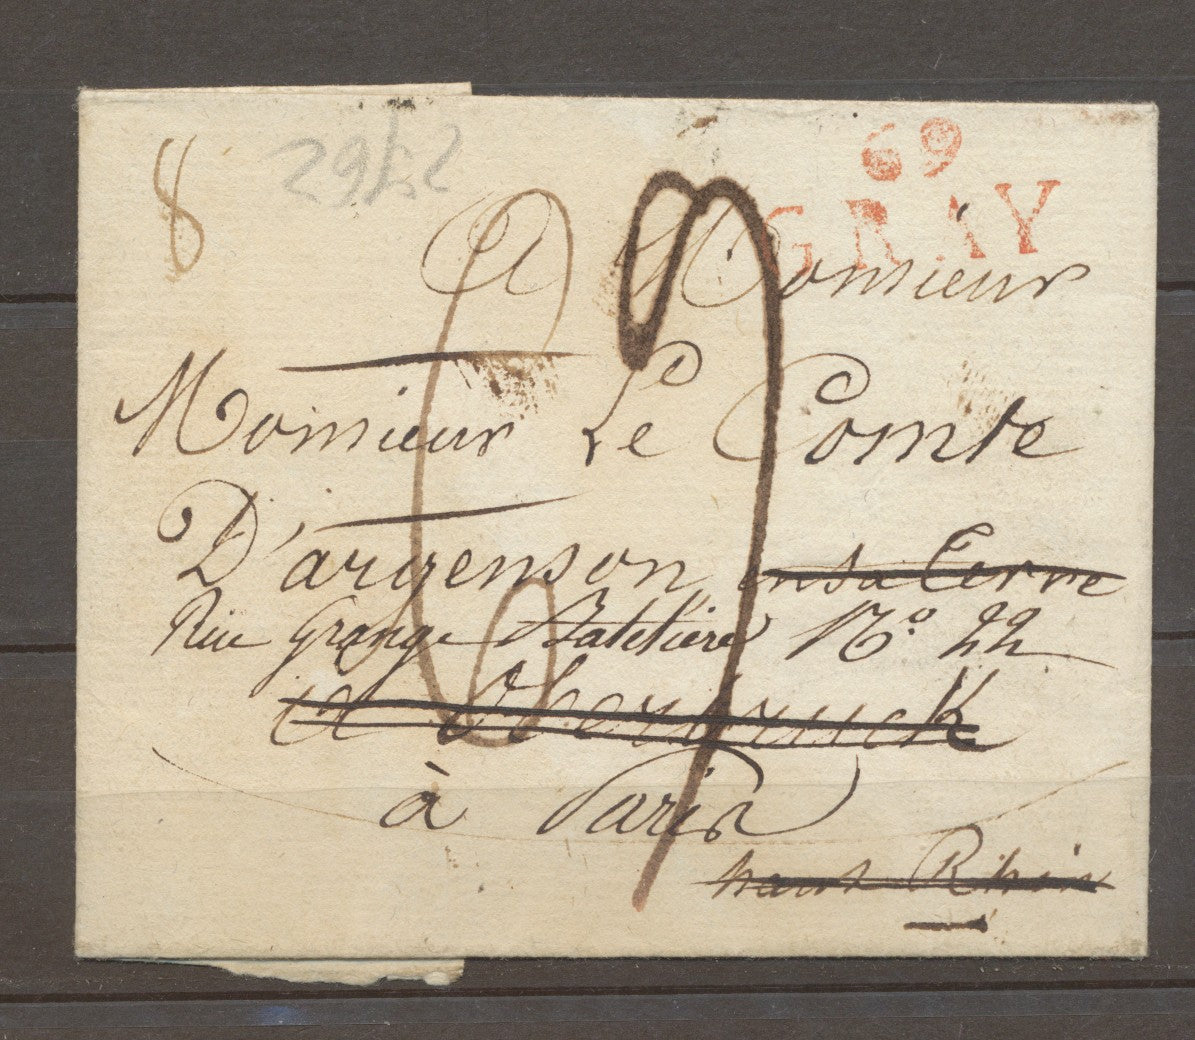 8
2962
69
GRAY
A Monsieur
Monsieur Le Comte
D'argenson en sa terre
Rue Grange Bateliere No. 22
a Oberbruck
à Paris
haut Rhin